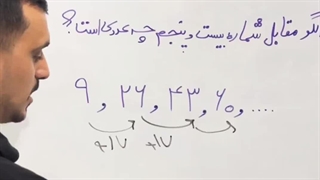 گو مقابل شماره بیست و پنجم چه عددی است؟
۹ , ۲۶ , ۴۳ , ۶۰ , ....
+۱۷ +۱۷